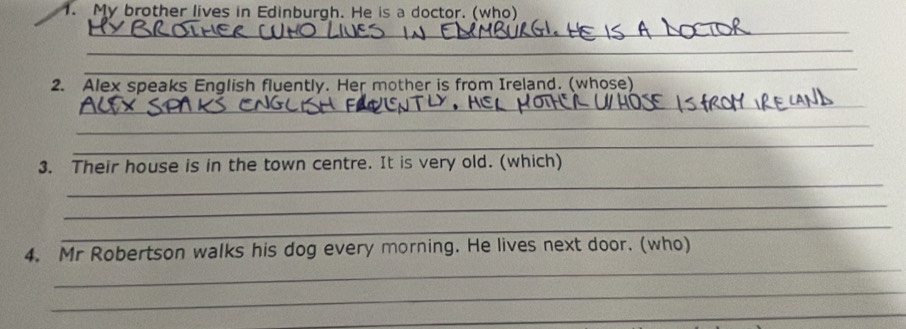 1. My brother lives in Edinburgh. He is a doctor. (who)
MY BROTHER WHO LIVES IN EDIMBURGI. HE IS A DOCTOR
2. Alex speaks English fluently. Her mother is from Ireland. (whose)
ALEX SPAKS ENGLISH FLUENTLY. HER MOTHER WHOSE IS FROM IRELAND
3. Their house is in the town centre. It is very old. (which)
4. Mr Robertson walks his dog every morning. He lives next door. (who)